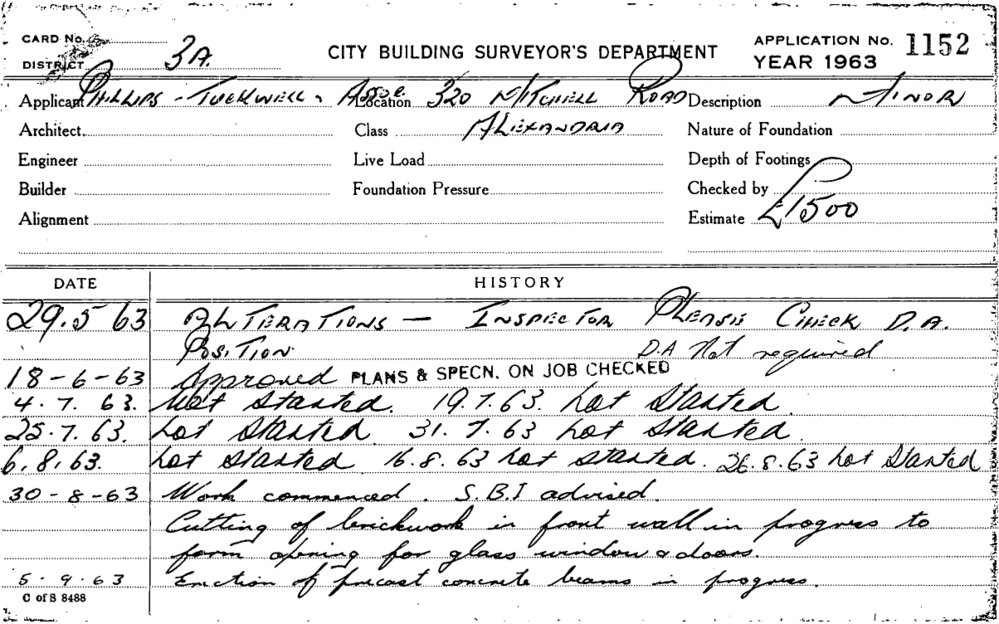 CARD No.
DISTRICT 3A.
CITY BUILDING SURVEYOR'S DEPARTMENT
APPLICATION No. 1152
YEAR 1963
Applicant PHILLIPS - TUCKWELL - Assoc. Location 320 MITCHELL ROAD Description MINOR
Architect Class ALEXANDRIA Nature of Foundation
Engineer Live Load Depth of Footings
Builder Foundation Pressure Checked by
Alignment Estimate £1500
DATE HISTORY
29.5 63 ALTERATIONS — INSPECTOR PLEASE CHECK D.A.
POSITION. D.A Not required
18-6-63 Approved PLANS & SPECN. ON JOB CHECKED
4.7.63. Not started. 19.7.63. Not started.
25.7.63. Not started. 31.7.63 Not started.
6.8.63. Not started 16.8.63 Not started. 26.8.63 Not started
30-8-63 Work commenced. S.B.I advised.
Cutting of brickwork in front wall in progress to
form opening for glass window & doors.
5.9.63 Erection of precast concrete beams in progress.
C of S 8488